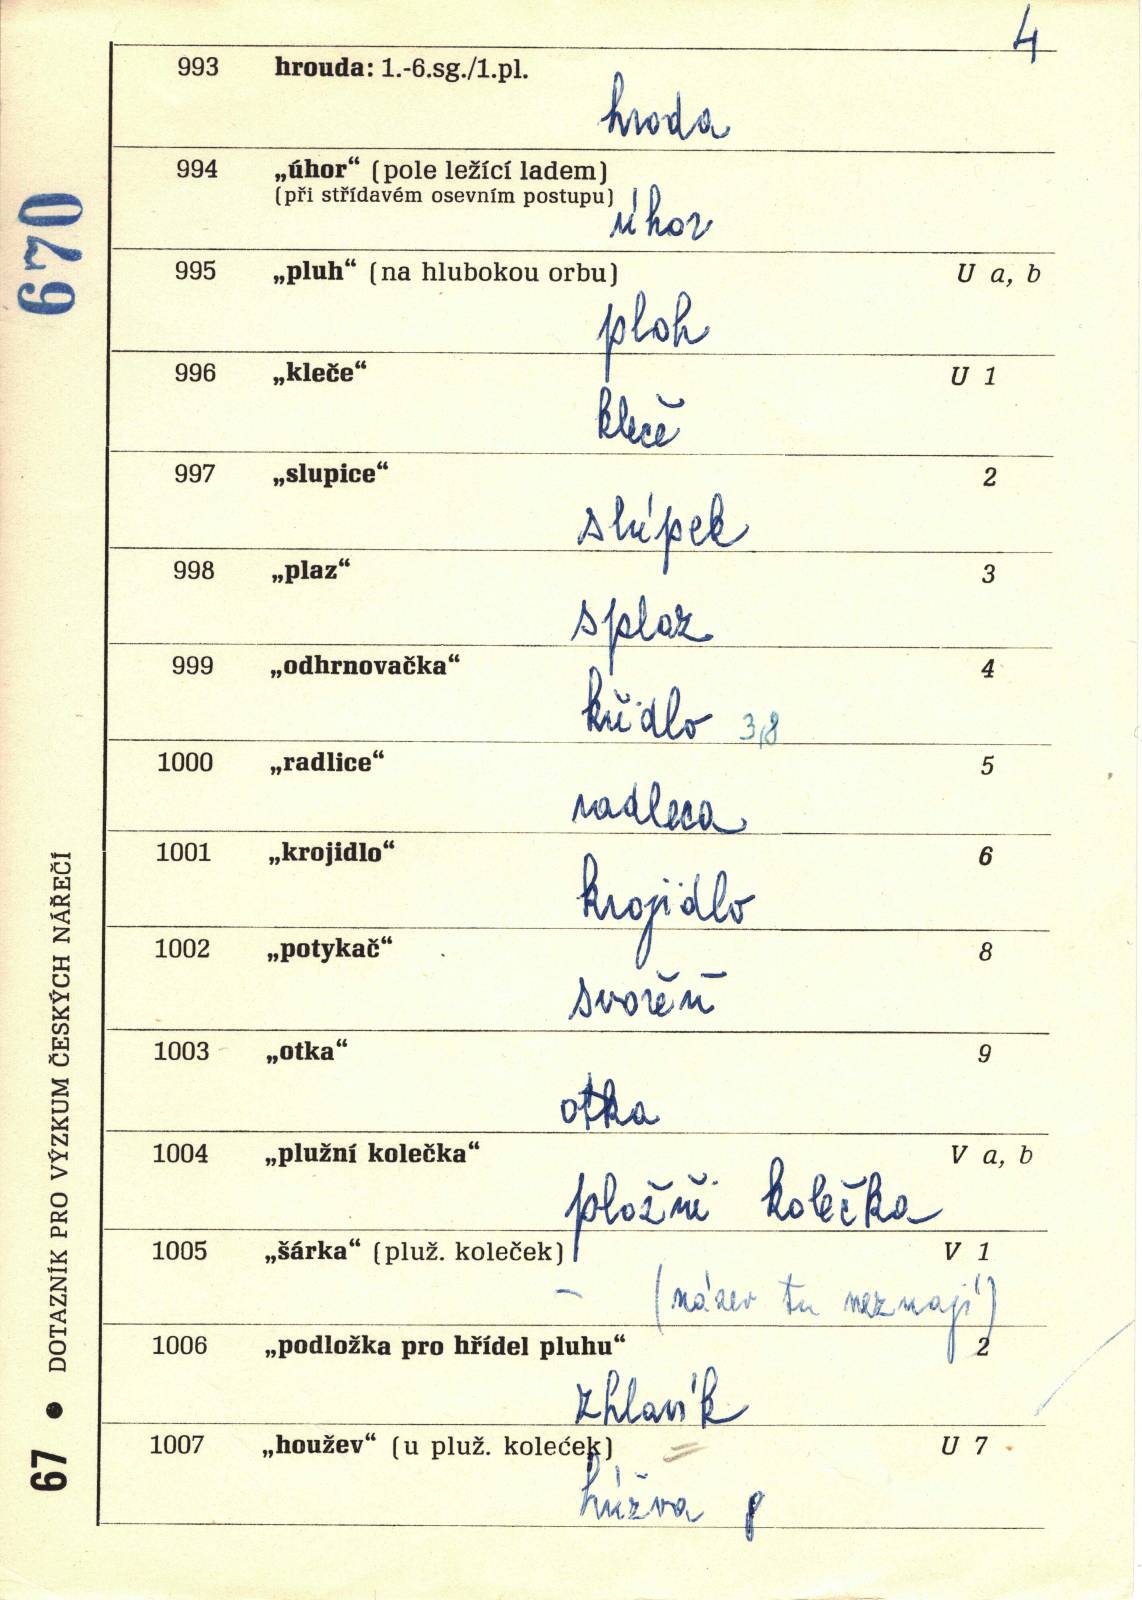 4
993 hrouda: 1.-6.sg./1.pl.
hroda
994 „úhor“ (pole ležící ladem)
(při střídavém osevním postupu)
úhor
995 „pluh“ (na hlubokou orbu) U a, b
ploh
996 „kleče“ U 1
kleče
997 „slupice“ 2
slúpek
998 „plaz“ 3
splaz
999 „odhrnovačka“ 4
3,8
1000 „radlice“ 5
radleca
1001 „krojidlo“ 6
krojidlo
1002 „potykač“ 8
svorěň
1003 „otka“ 9
otka
1004 „plužní kolečka“ V a, b
pložňi kolečka
1005 „šárka“ (pluž. koleček) V 1
– (název tu neznají)
1006 „podložka pro hřídel pluhu“ 2
zhlavík
1007 „houžev“ (u pluž. koleček) U 7
húžva
670
67 ● DOTAZNÍK PRO VÝZKUM ČESKÝCH NÁŘEČÍ